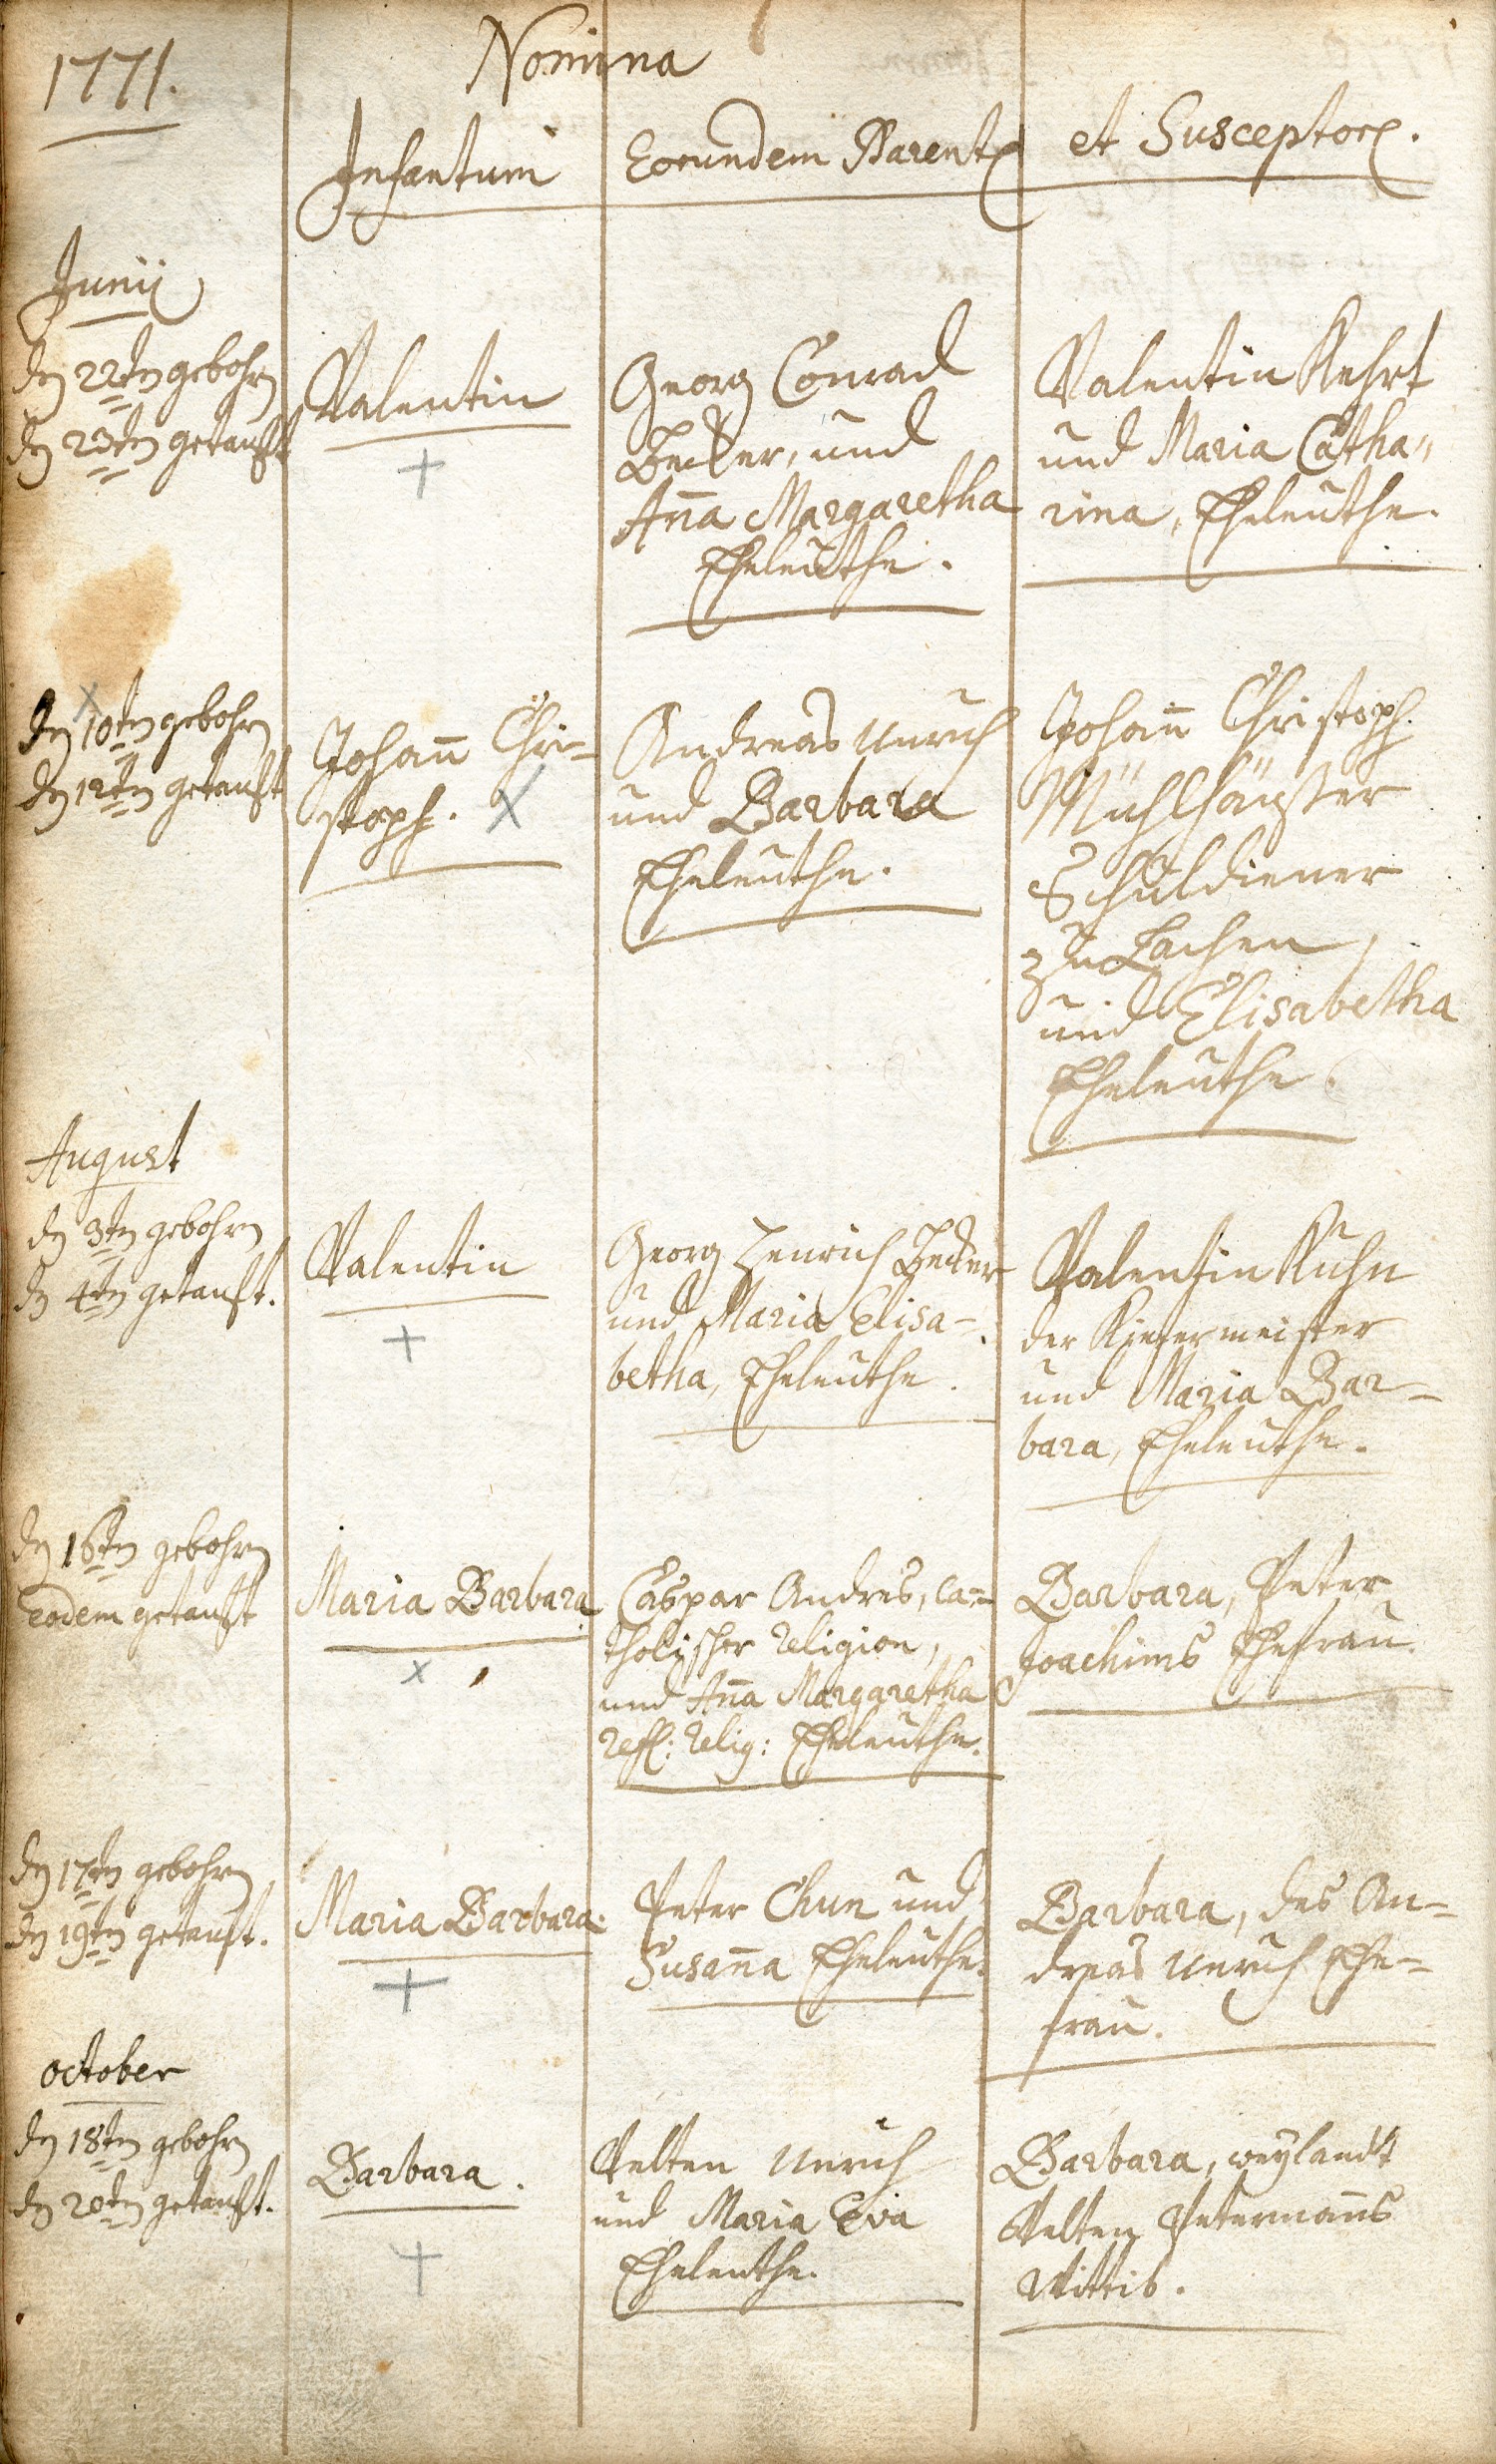 1771.
Nomina
Infantum
Eorundem Parent
et Susceptor.
Junij
den 22ten gebohrn
den 23ten getauft
Valentin
Georg Conrad
Becker, und
Anna Margaretha
Eheleuthe.
Valentin Kehrt
und Maria Catha„
rina, Eheleuthe.
den 10ten gebohrn
den 12ten getauft
Johann Chri-
stoph.
Andreas Unruh
und Barbara
Eheleuthe.
Johann Christoph
Mühlhäußer
Schuldiener
zu Lachen,
und Elisabetha
Eheleuthe.
August
den 3ten gebohrn
den 4ten getauft.
Valentin
Georg Henrich Becker
und Maria Elisa-
betha, Eheleuthe.
Valentin Kuhn
der Kiefermeister
und Maria Bar-
bara, Eheleuthe.
den 16ten gebohrn
eodem getauft
Maria Barbara
Caspar Andres, ca-
tholischer religion,
und Anna Margaretha
reff: relig: Eheleuthe.
Barbara, Peter
Joachims Ehefrau.
den 17ten gebohrn
den 19ten getauft.
Maria Barbara.
Peter Chun und
Susanna Eheleuthe.
Barbara, des An-
dreas Unruh Ehe-
frau.
October
den 18ten gebohrn
den 20ten getauft.
Barbara.
Velten Unruh
und Maria Eva
Eheleuthe.
Barbara, weylandt
Velten Petermanns
Wittib.